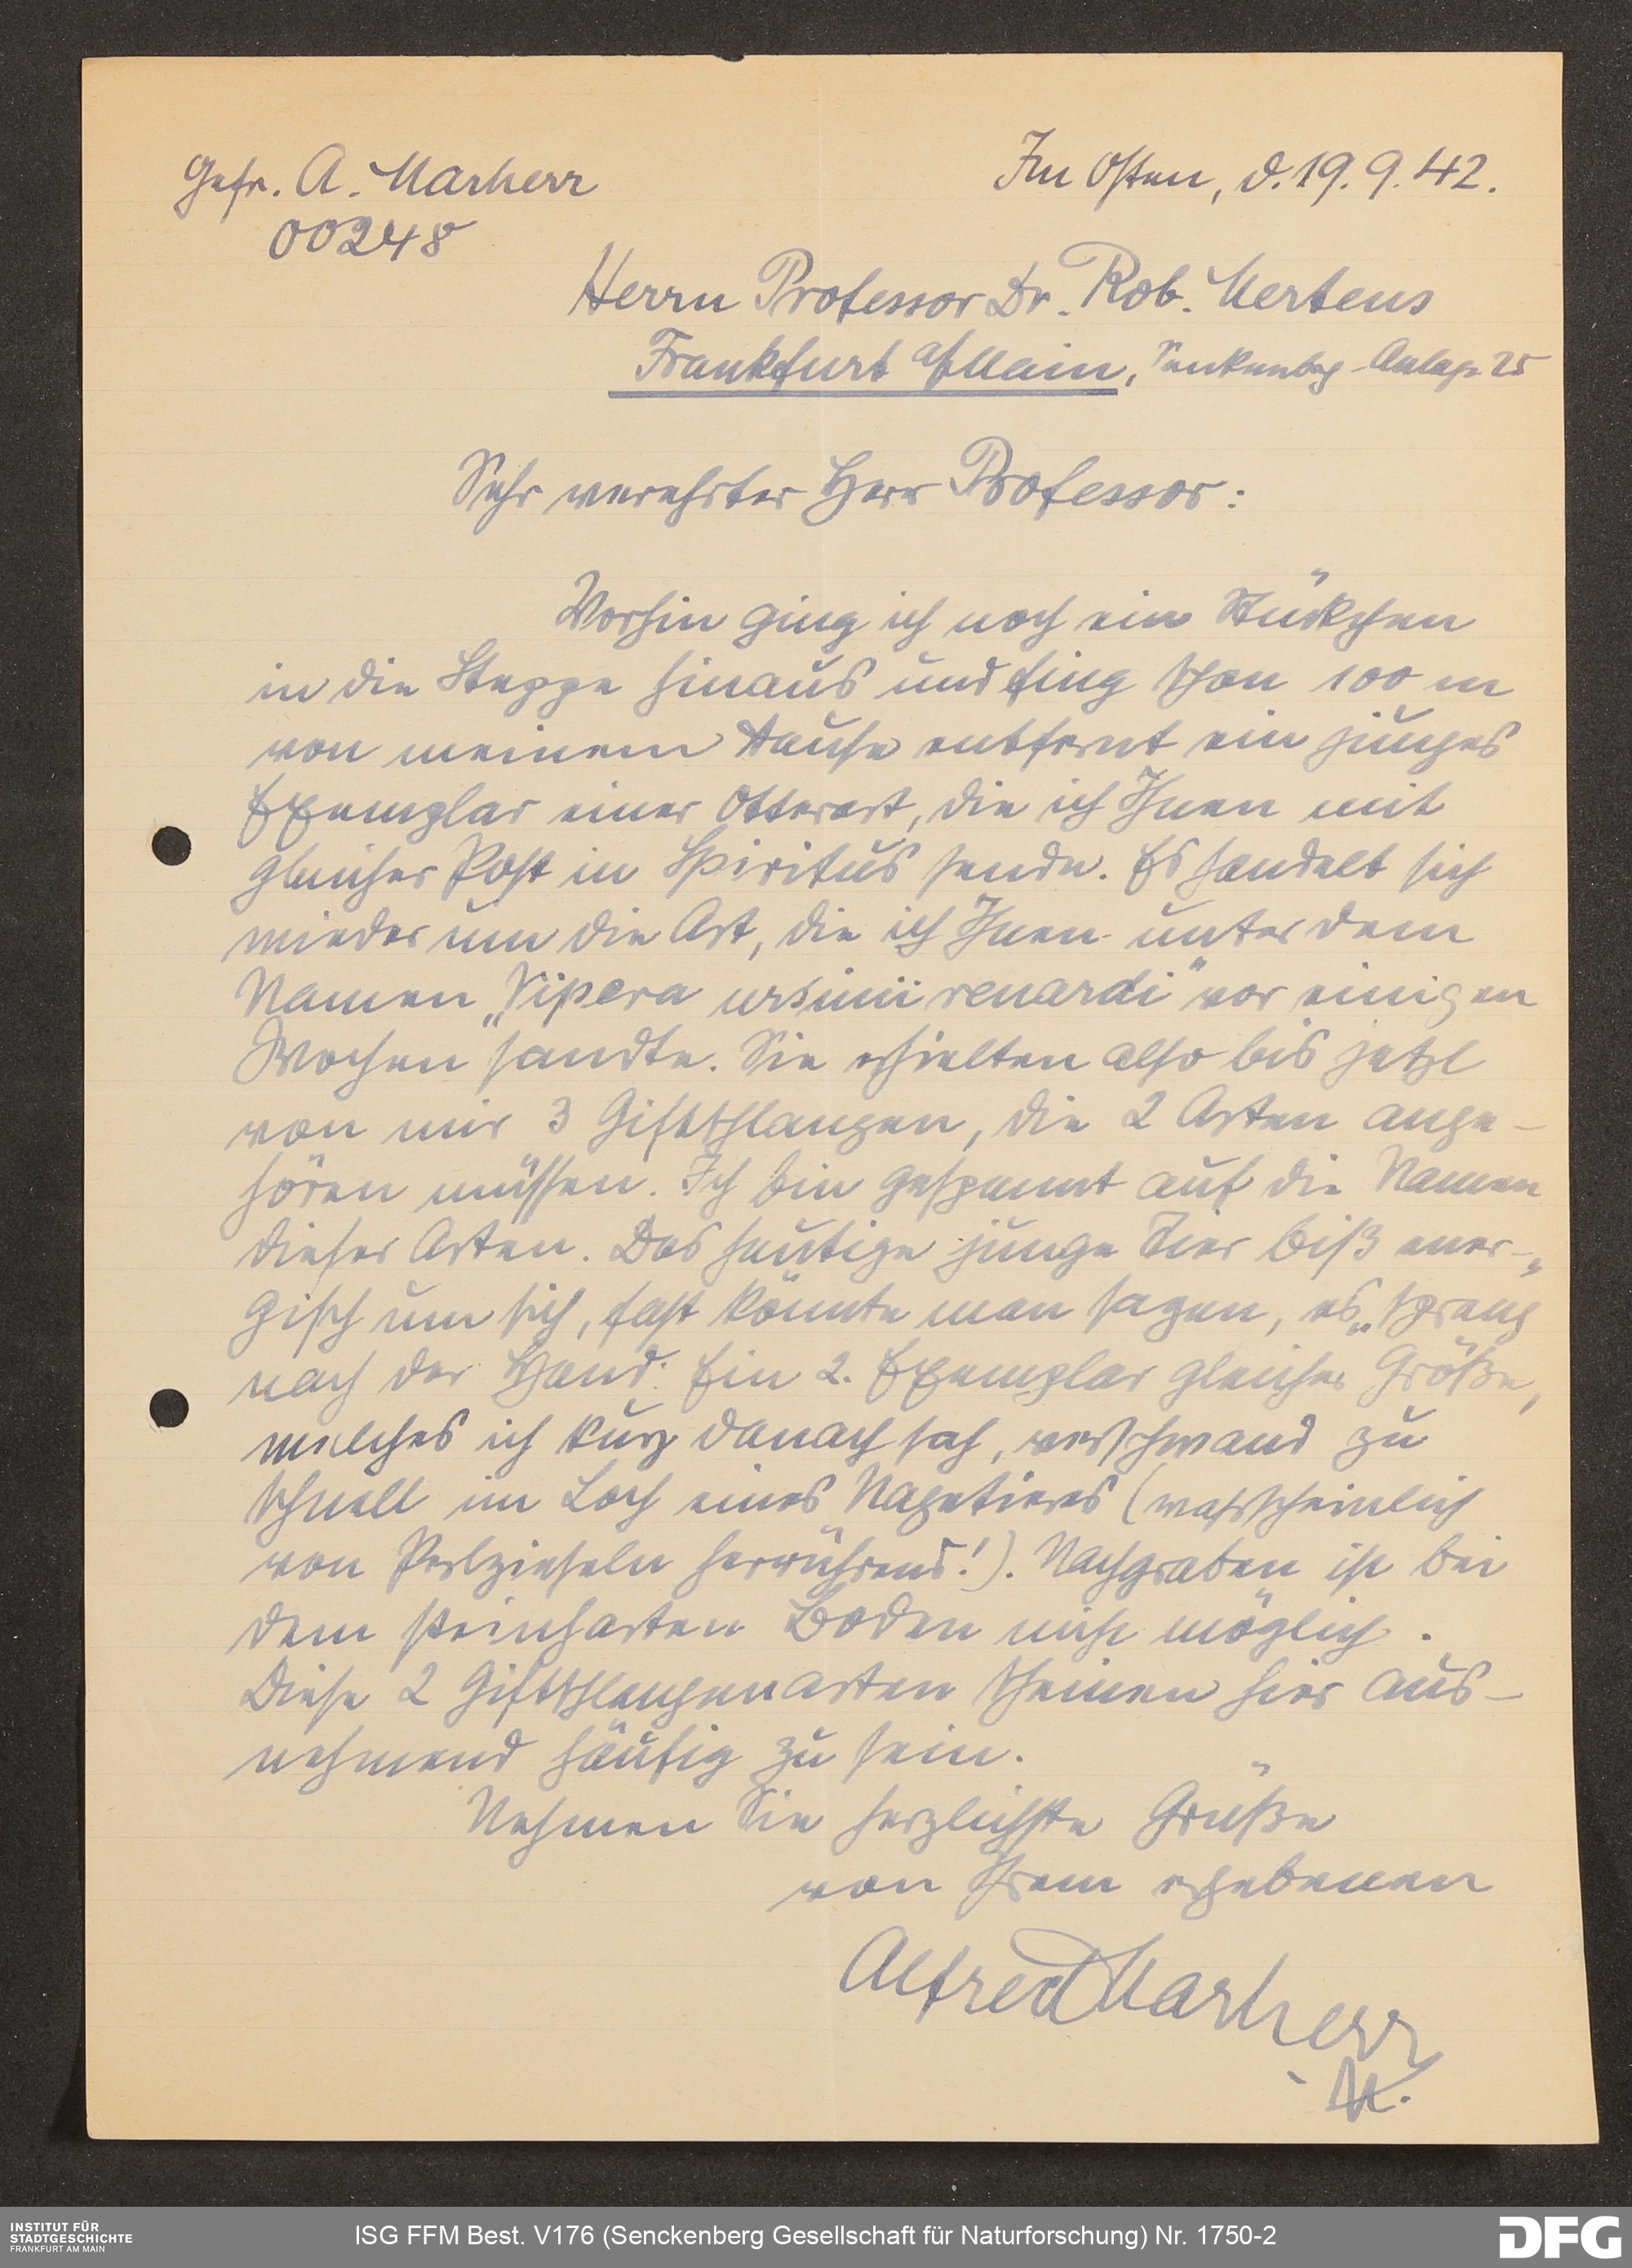 Gefr. A. Marherr
00248
Im Osten, d. 19. 9. 42.
Herrn Professor Dr. Rob. Mertens
Frankfurt a/Main, Senckenbg-Anlage 25
Sehr verehrter Herr Professor:
Vorhin ging ich noch ein Stückchen
in die Steppe hinaus und fing schon 100 m
von meinem Hause entfernt ein junges
Exemplar einer Otterart, die ich Ihnen mit
gleicher Post in Spiritus sende. Es handelt sich
wieder um die Art, die ich Ihnen unter dem
Namen „Vipera ursinii renardi" vor einigen
Wochen sandte. Sie erhielten also bis jetzt
von mir 3 Giftschlangen, die 2 Arten ange-
hören müssen. Ich bin gespannt auf die Namen
dieser Arten. Das heutige junge Tier biß ener-
gisch um sich, fast könnte man sagen, es „sprang"
nach der Hand. Ein 2. Exemplar gleicher Größe,
welches ich kurz danach sah, verschwand zu
schnell im Loch eines Nagetieres (wahrscheinlich
von Perlzieseln herrührend!). Nachgraben ist bei
dem steinharten Boden nicht möglich.
Diese 2 Giftschlangenarten scheinen hier aus-
nehmend häufig zu sein.
Nehmen Sie herzlichste Grüße
von Ihrem ergebenen
Alfred Marherr
INSTITUT FÜR
STADTGESCHICHTE
FRANKFURT AM MAIN
ISG FFM Best. V176 (Senckenberg Gesellschaft für Naturforschung) Nr. 1750-2
DFG